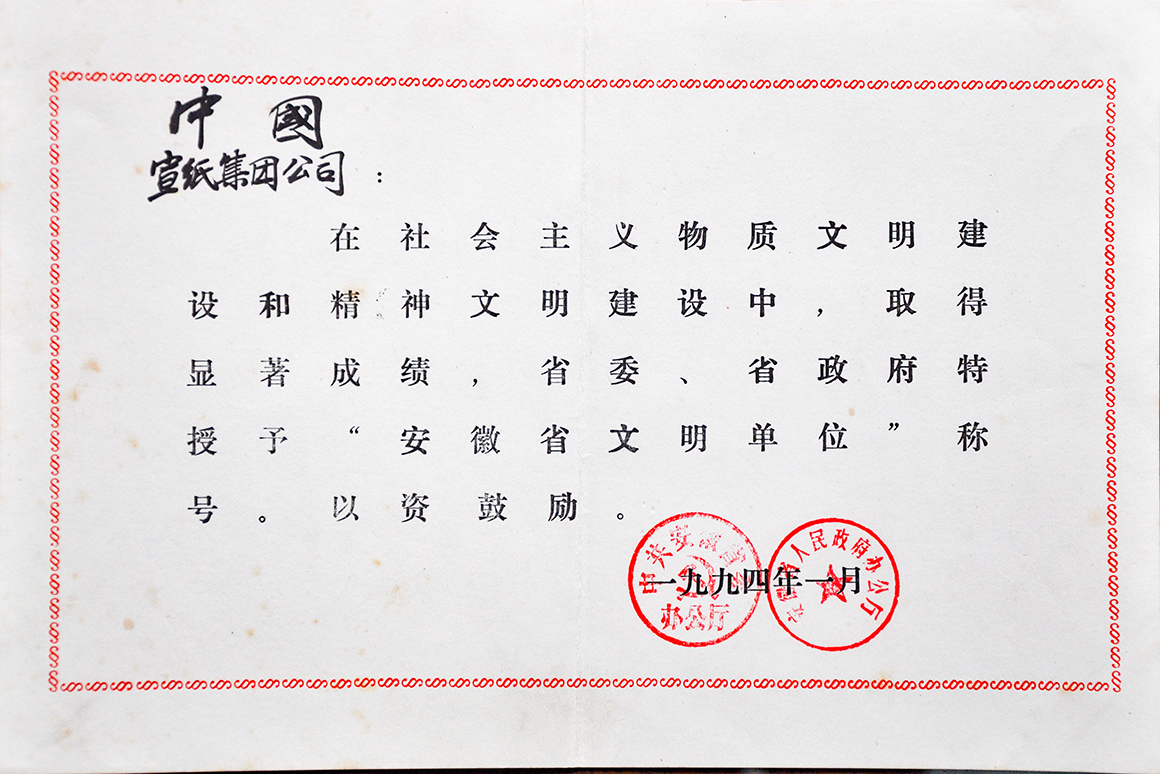 中國
宣纸集团公司：
在社会主义物质文明建
设和精神文明建设中，取得
显著成绩，省委、省政府特
授予“安徽省文明单位”称
号。以资鼓励。
中共安徽省委
办公厅
安徽省人民政府办公厅
一九九四年一月